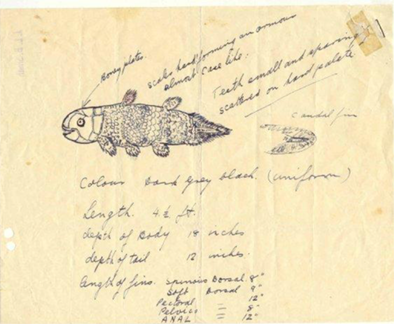 Boney plates
scales hard forming an armour
almost case like.
Teeth small and sparing
scattered on hard palate
Caudal fin
Colour hard grey black. (uniform)
Length. 4½ ft.
depth of Body 18 inches
depth of tail 12 inches.
length of fins. spinous Dorsal 8"
Soft Dorsal 9"
Pectoral = 12"
Pelvics = 8"
ANAL = 12"